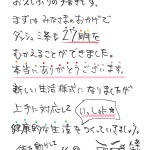 お久しぶりの手書きです。
まずは みなさまのおかげで
ダッシュ三茶も 27周年を
むかえることができました。
本当にありがとうございます。
新しい生活様式になりますが
上手に対応して いっしょに
健康的な生活をつくっていきましょう。